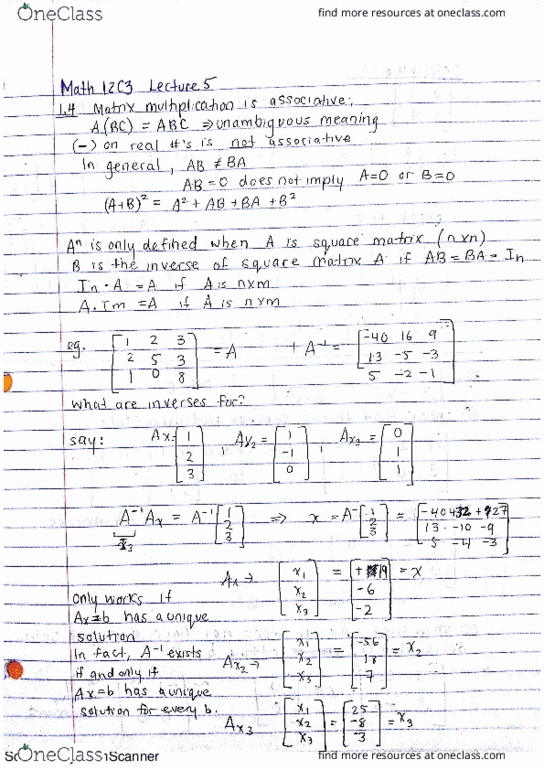 OneClass
find more resources at oneclass.com
Math 12C3 Lecture 5
1.4 Matrix multiplication is associative:
A(BC) = ABC ⇒ unambiguous meaning
(-) on real #'s is not associative
In general, AB ≠ BA
AB = 0 does not imply A=0 or B=0
(A+B)² = A² + AB + BA + B²
Aⁿ is only defined when A is square matrix (n×n)
B is the inverse of square matrix A if AB = BA = In
In · A = A if A is n×m
A · Im = A if A is n×m
eg. [1 2 3; 2 5 3; 1 0 8] = A + A⁻¹ = [-40 16 9; 13 -5 -3; 5 -2 -1]
what are inverses for?
say: Ax = [1; 2; 3], Ax₂ = [1; -1; 0], Ax₃ = [0; 1; 1]
A⁻¹Ax = A⁻¹[1; 2; 3] ⇒ x = A⁻[1; 2; 3] = [-40 +32 +27; 13 -10 -9; 5 -4 -3]
Ax → [x₁; x₂; x₃] = [+19; -6; -2] = x
only works if
Ax=b has a unique
solution
In fact, A⁻¹ exists
if and only if
Ax=b has a unique
solution for every b.
Ax₂ → [x₁; x₂; x₃] = [-56; 18; 7] = x₂
Ax₃ [x₁; x₂; x₃] = [25; -8; -3] = x₃
OneClass
Scanner
find more resources at oneclass.com